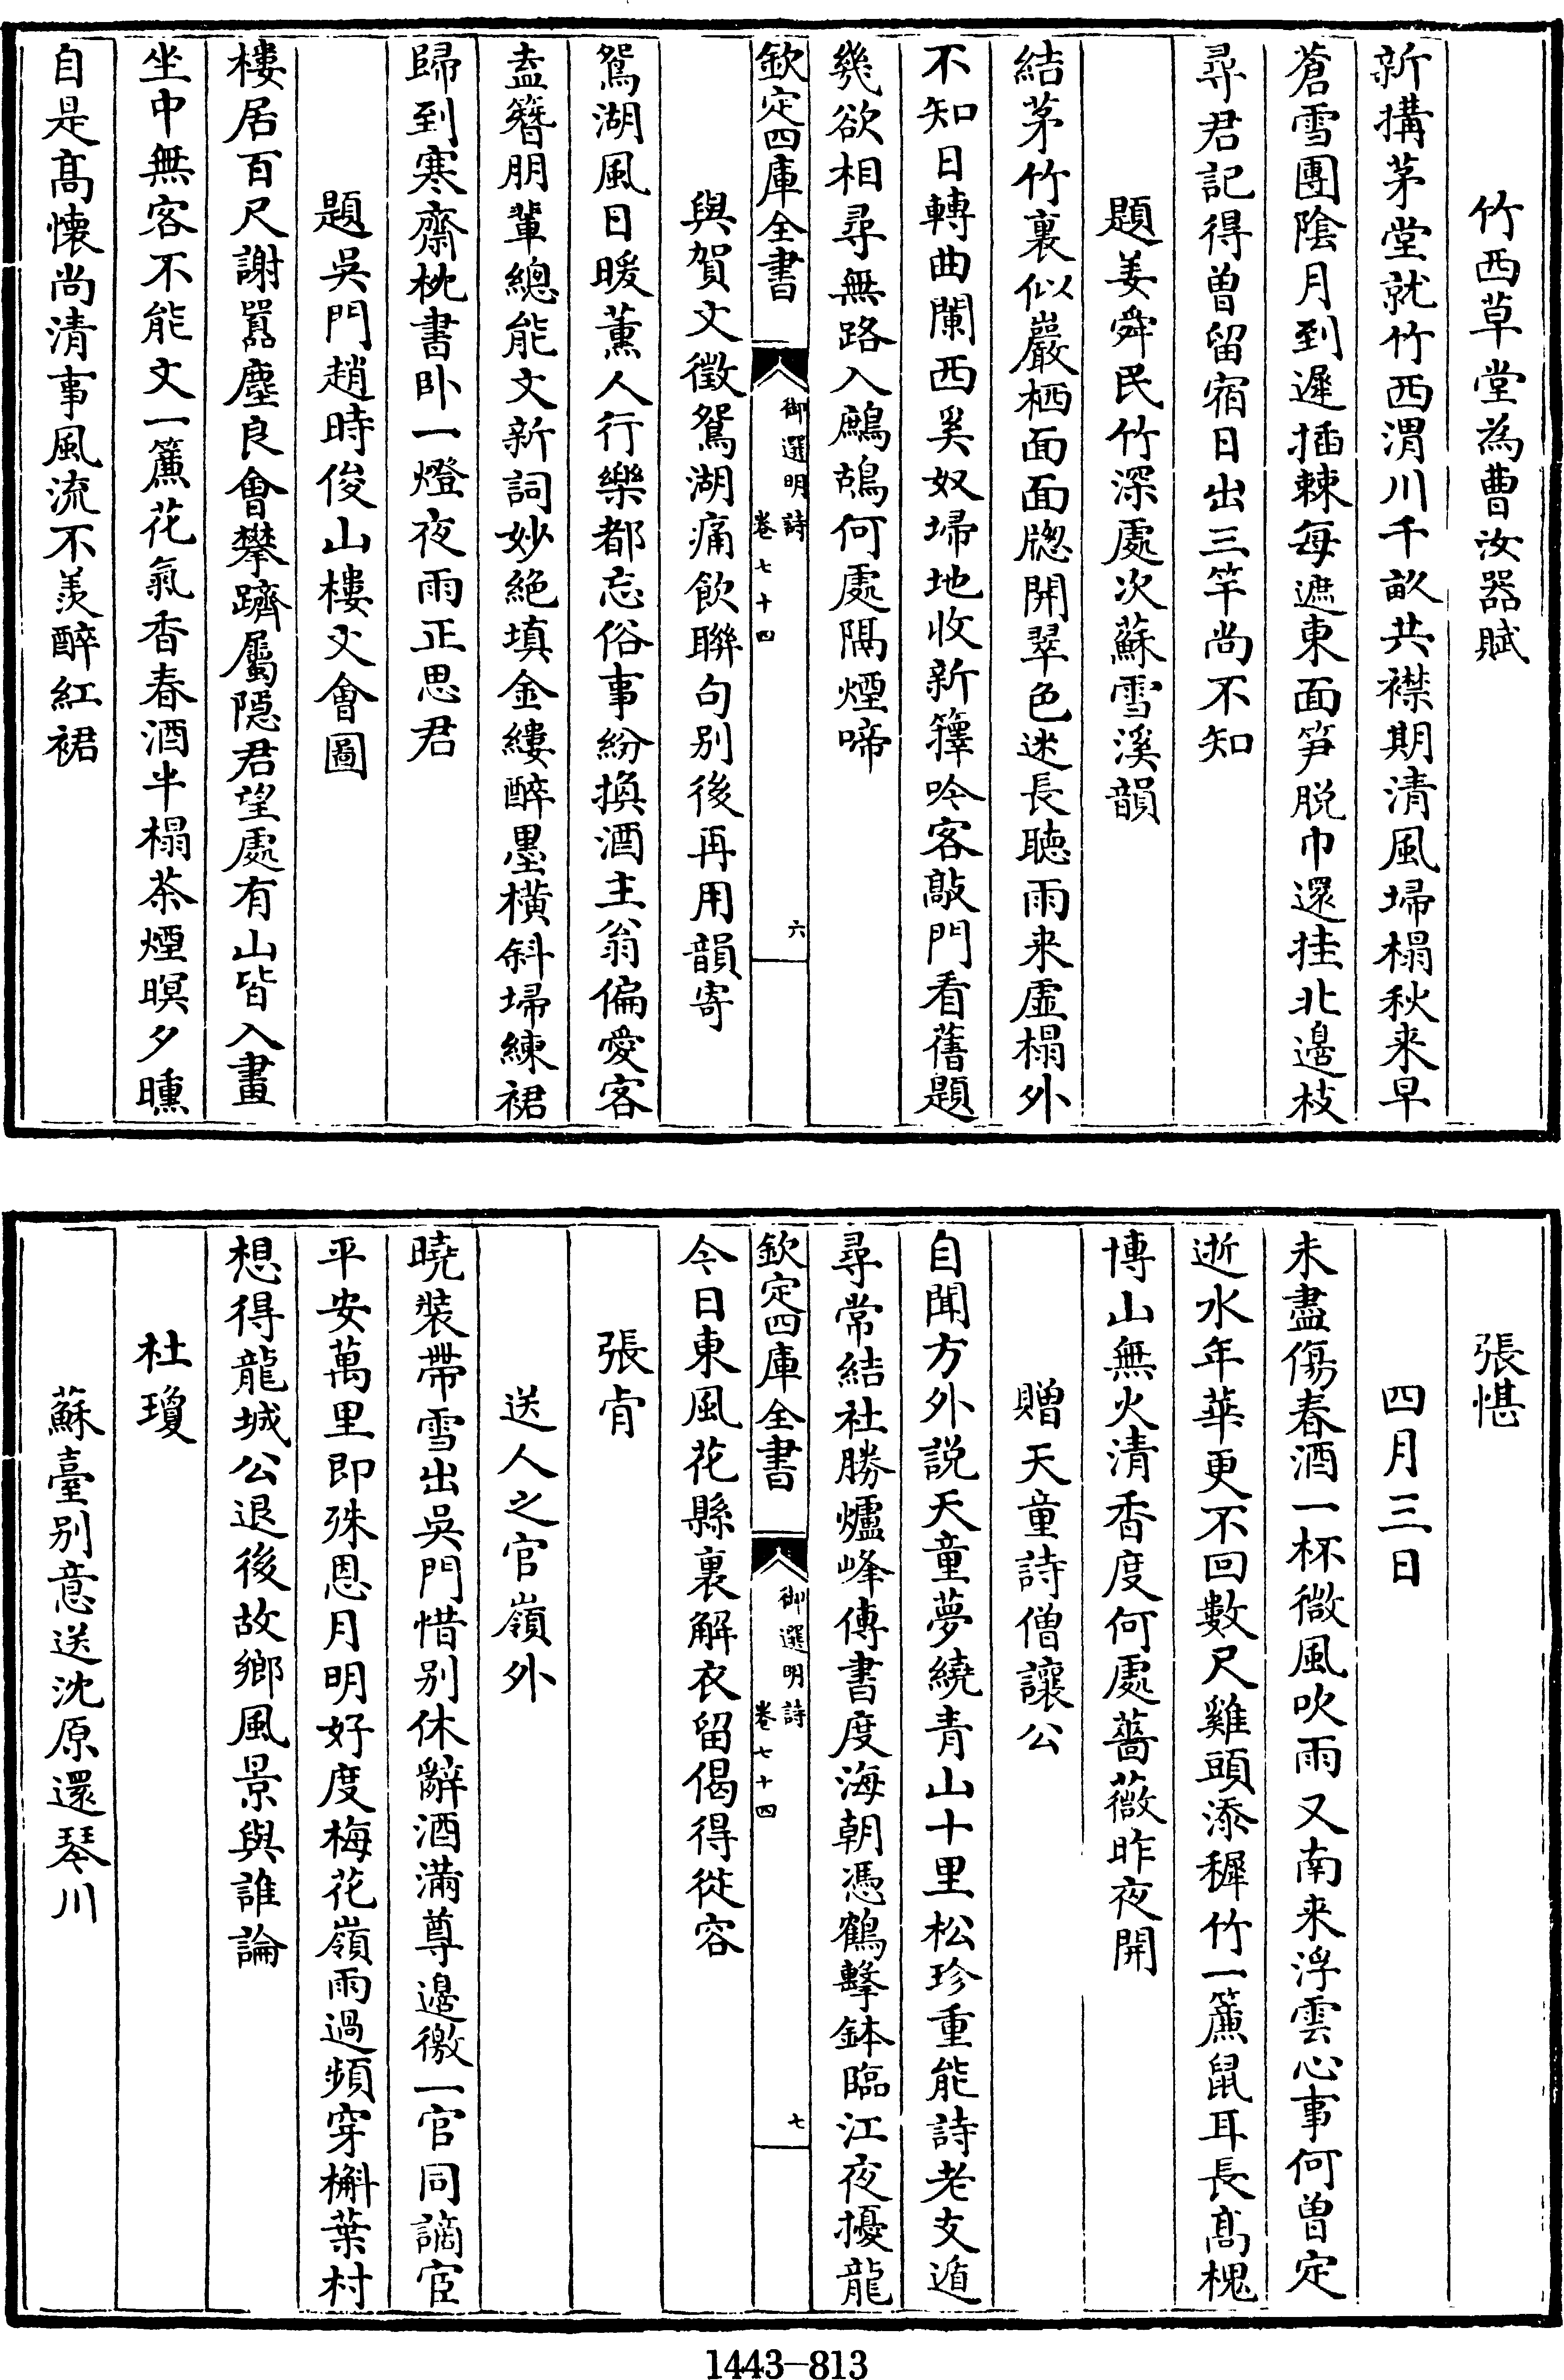 竹西草堂為曹汝器賦
新搆茅堂就竹西渭川千畝共襟期清風埽榻秋来早
蒼雪團陰月到遲插棘每遮東面笋脱巾還挂北邉枝
尋君記得曽留宿日出三竿尚不知
題姜舜民竹深處次蘇雪溪韻
結茅竹裏似巖栖面面牕開翠色迷長聴雨来虚榻外
不知日轉曲闌西奚奴埽地收新籜吟客敲門看舊題
幾欲相尋無路入鷓鴣何處隔煙啼
欽定四庫全書
御選明詩
卷七十四
六
與賀文徵鴛湖痛飲聯句别後再用韻寄
鴛湖風日暖薰人行樂都忘俗事紛換酒主翁偏愛客
盍簪朋輩總能文新詞妙絶填金縷醉墨横斜埽練裙
歸到寒齋枕書卧一燈夜雨正思君
題吳門趙時俊山樓文會圖
樓居百尺謝囂塵良會攀躋屬隠君望處有山皆入畫
坐中無客不能文一簾花氣香春酒半榻茶煙暝夕曛
自是髙懐尚清事風流不羡醉紅裙
張愖
四月三日
未盡傷春酒一杯微風吹雨又南来浮雲心事何曽定
逝水年華更不回數尺雞頭添穉竹一簾鼠耳長髙槐
博山無火清香度何處薔薇昨夜開
贈天童詩僧讓公
自聞方外説天童夢繞青山十里松珍重能詩老支遁
尋常結社勝爐峰傳書度海朝憑鶴擊鉢臨江夜擾龍
欽定四庫全書
御選明詩
卷七十四
七
今日東風花縣裏解衣留偈得從容
張肯
送人之官嶺外
曉裝帶雪出吳門惜别休辭酒滿尊邉徼一官同謫宦
平安萬里即殊恩月明好度梅花嶺雨過頻穿槲葉村
想得龍城公退後故鄉風景與誰論
杜瓊
蘇臺别意送沈原還琴川
1443-813